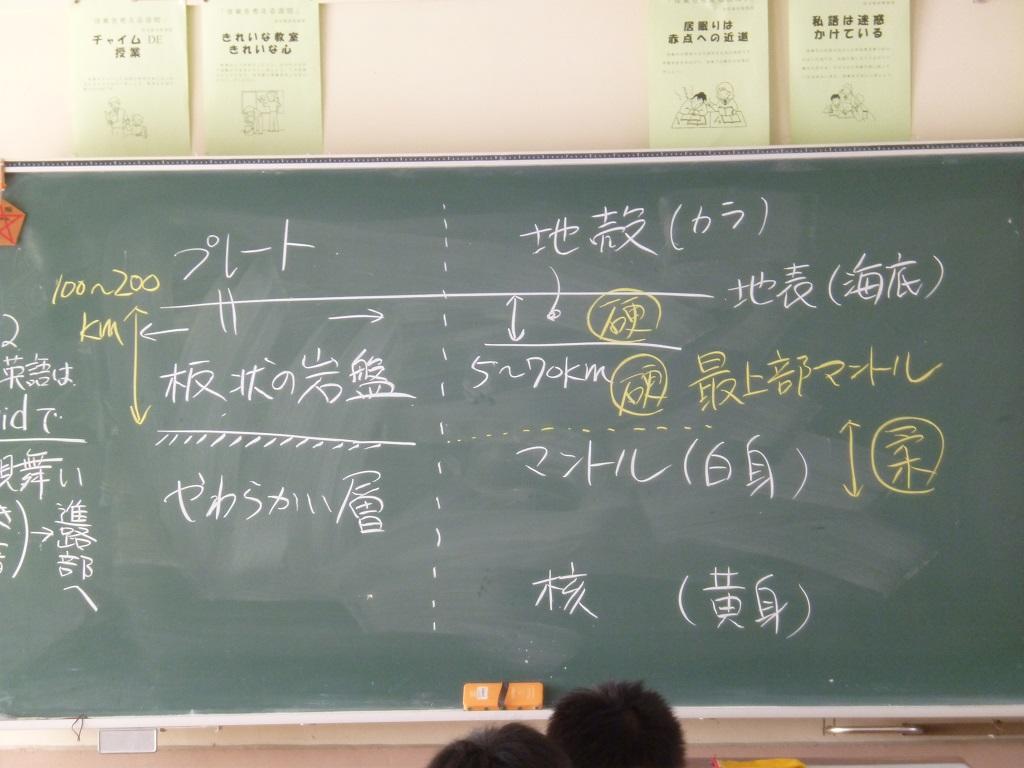 チャイム DE
授業
きれいな教室
きれいな心
居眠りは
赤点への近道
私語は迷惑
かけている
英語は
idで
舞い
進路部へ
プレート
100〜200
km
板状の岩盤
やわらかい層
地殻(カラ)
地表(海底)
硬
5〜70km
硬 最上部マントル
マントル(白身)
柔
核 (黄身)